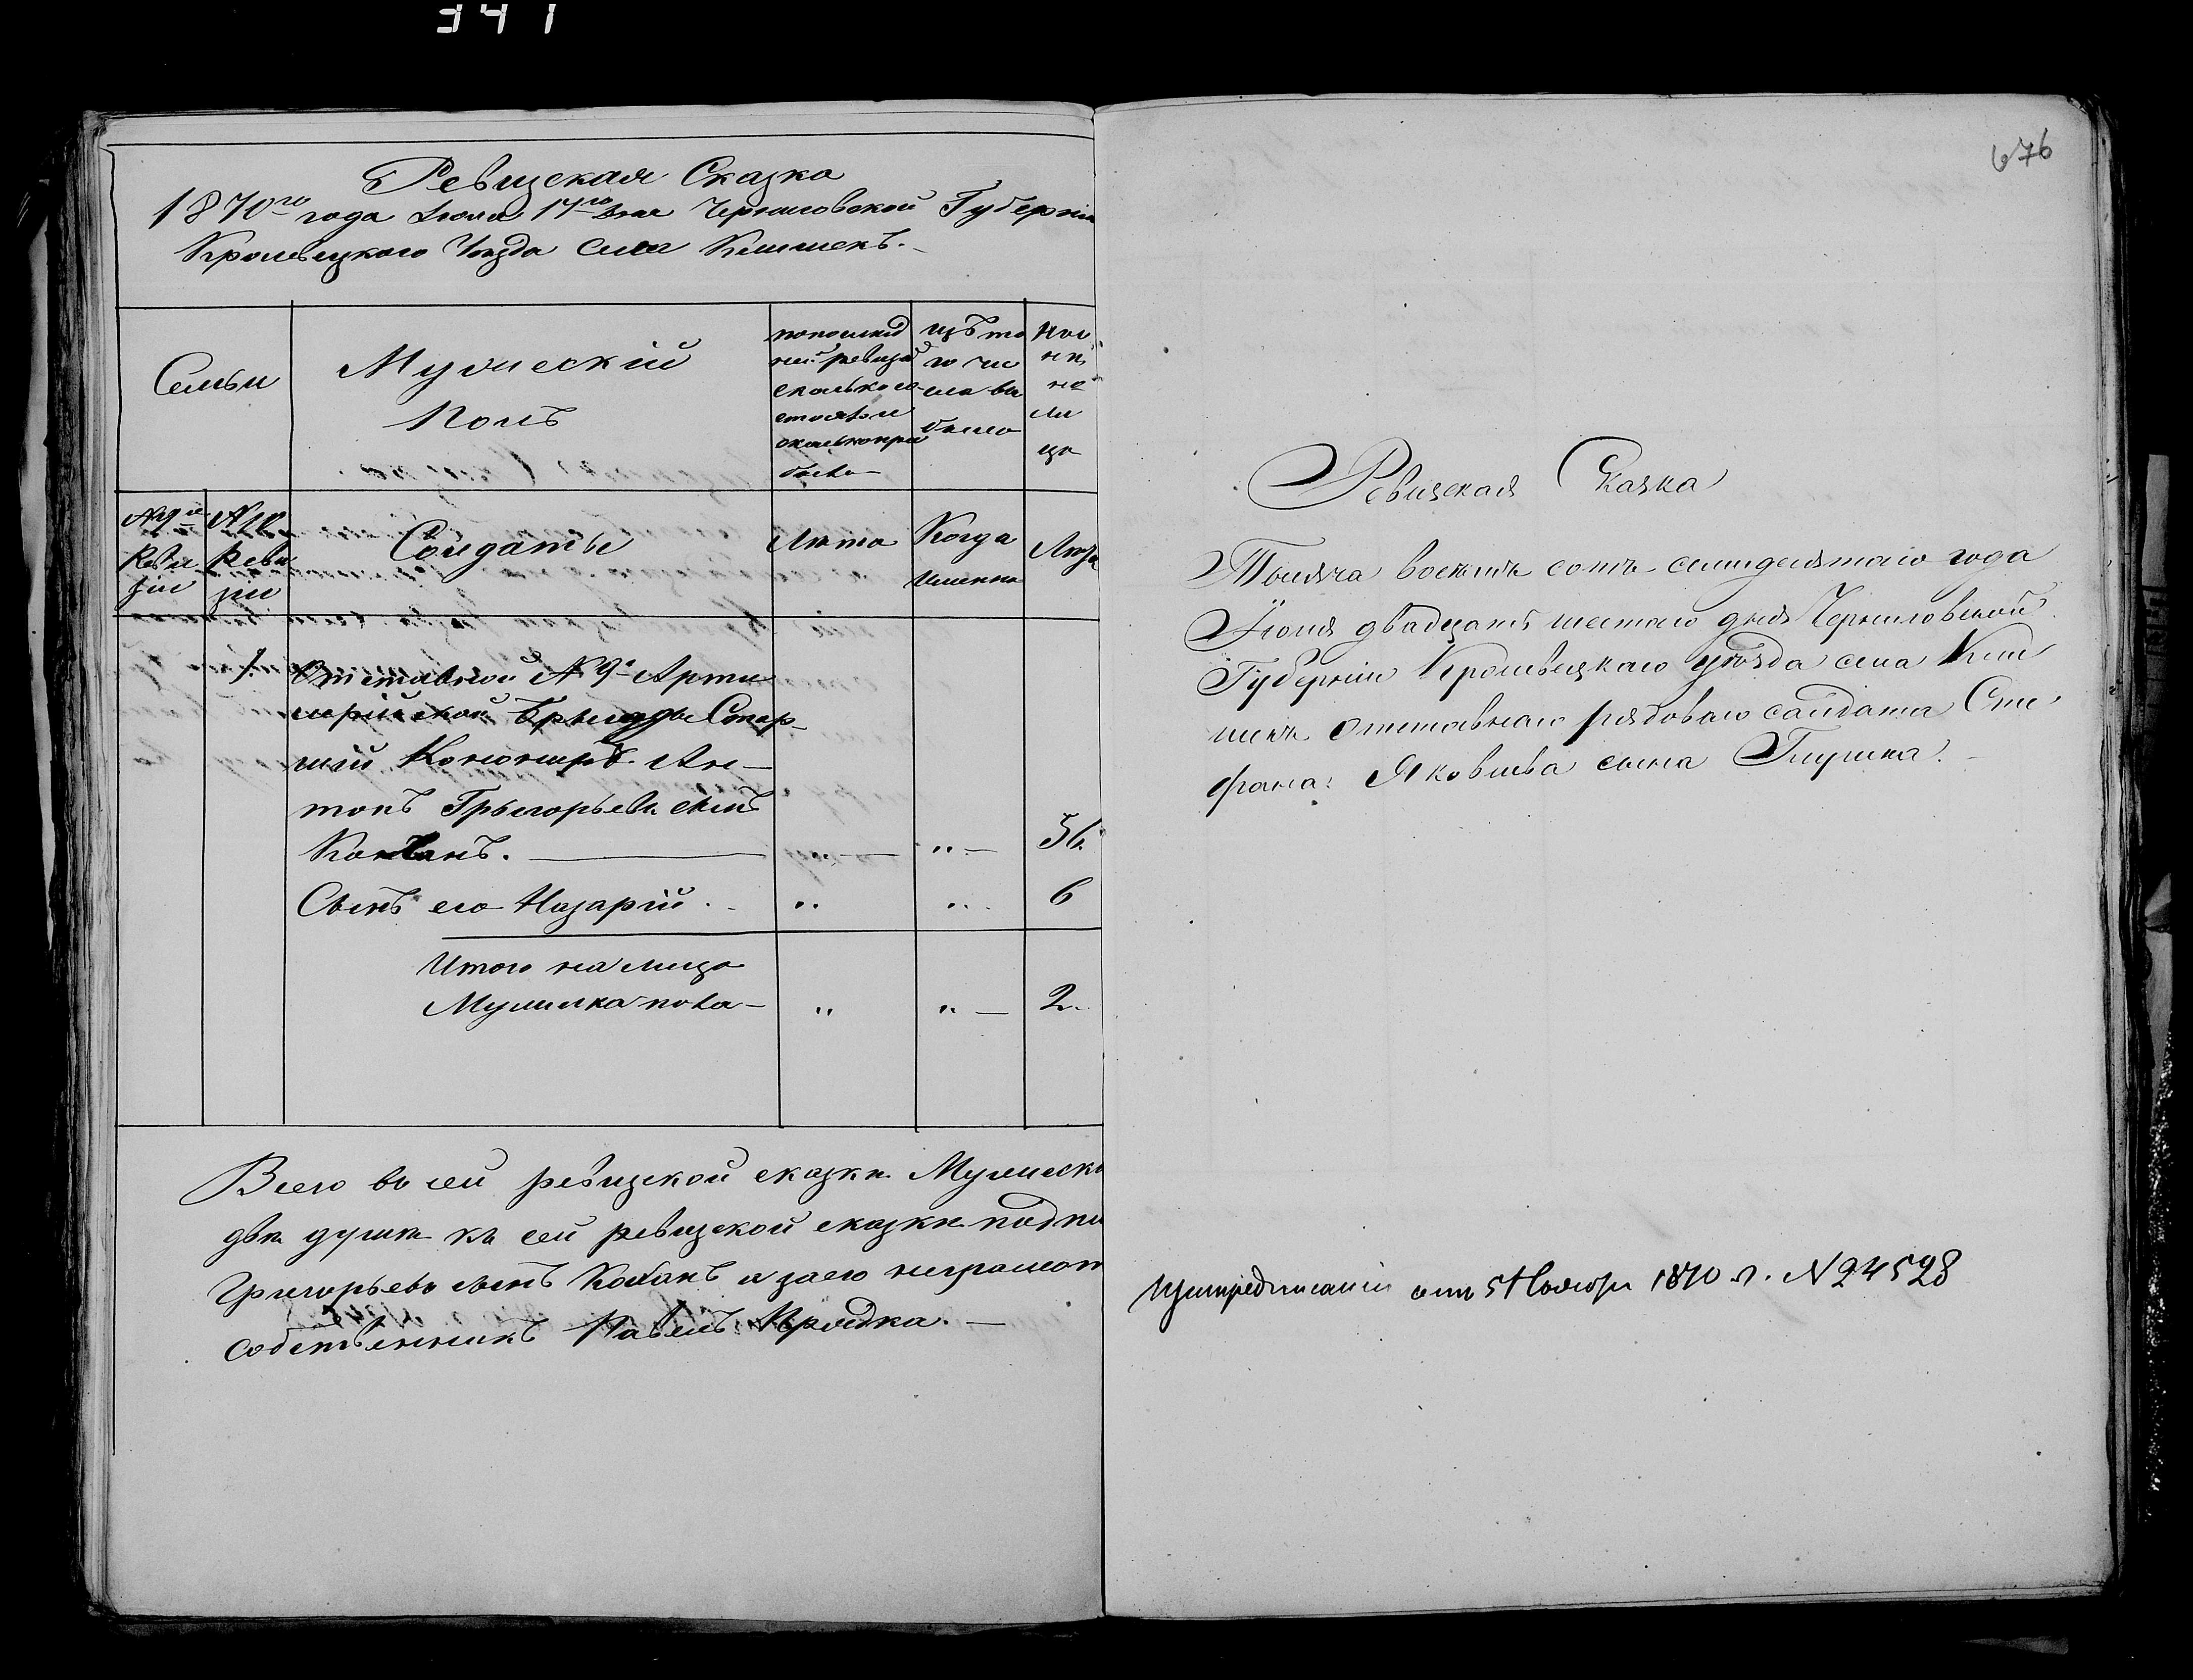 341
676
Ревизская Сказка
1870го года Июля 17го дня Черниговской Губерніи
Кролевецкого Уезда Села Клишекъ.
Семьи
Мужескій
Полъ
попослед
ней ревизіи
сколько со
стояло и
сколько при
было
изъ то
го чи
сла вы
было
Ны
не
на
ли
цо
№ 9й
Реви
зіи
№ 10
Реви
зіи
Солдаты
Лета
Когда
именно
Лета
1.
Отставной № 9й Арти
лерійской Брыгады Стар
шій Конониръ Ан
тонъ Грыгорьевъ сынъ
Коханъ. — „ — 56.
Сынъ его Назарій. „ „ 6
Итого на лицо
Мужеска пола — „ „ — 2.
Всего въ сей ревизской сказки Мужеска
две души къ сей ревизской сказки подпи
Григорьевъ сынъ Коханъ а заего неграмот
собственникъ Павелъ
Ревизская Сказка
Тысяча восемь сотъ семидесятого года
Іюля двадцать шестаго дня Черниговской
Губерніи Кролевецкаго уезда села Кли
шекъ отставнаго рядоваго салдата Сте
фана Яковлева сына Глушка.
При предписаніи отъ 5 Ноября 1870 г. № 24528